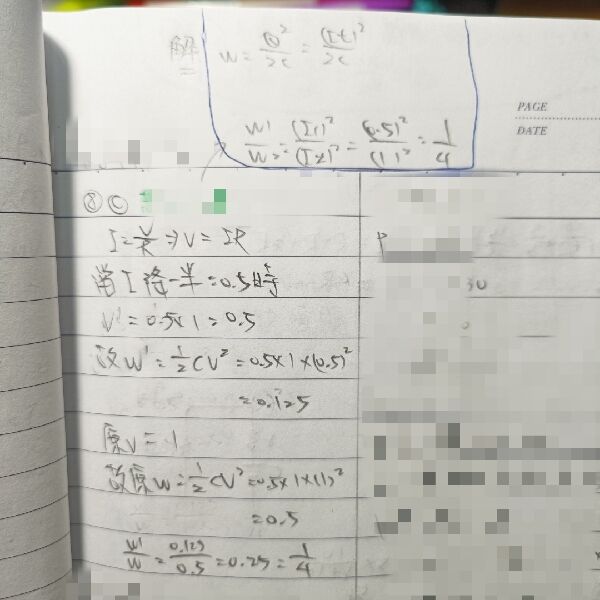 解
W = Q²/2C = (It)²/2C
W₁/W₂ = (I₁)²/(I₂)² = (0.5)²/(1)² = 1/4
PAGE
DATE
⑧ Ⓒ
I = V/R ⇒ V = IR
當 I 降一半 = 0.5時
V' = 0.5×1 = 0.5
故 W' = 1/2 CV² = 0.5×1×(0.5)²
= 0.125
原 V = 1
故原 W = 1/2 CV² = 0.5×1×(1)²
= 0.5
W'/W = 0.125/0.5 = 0.25 = 1/4